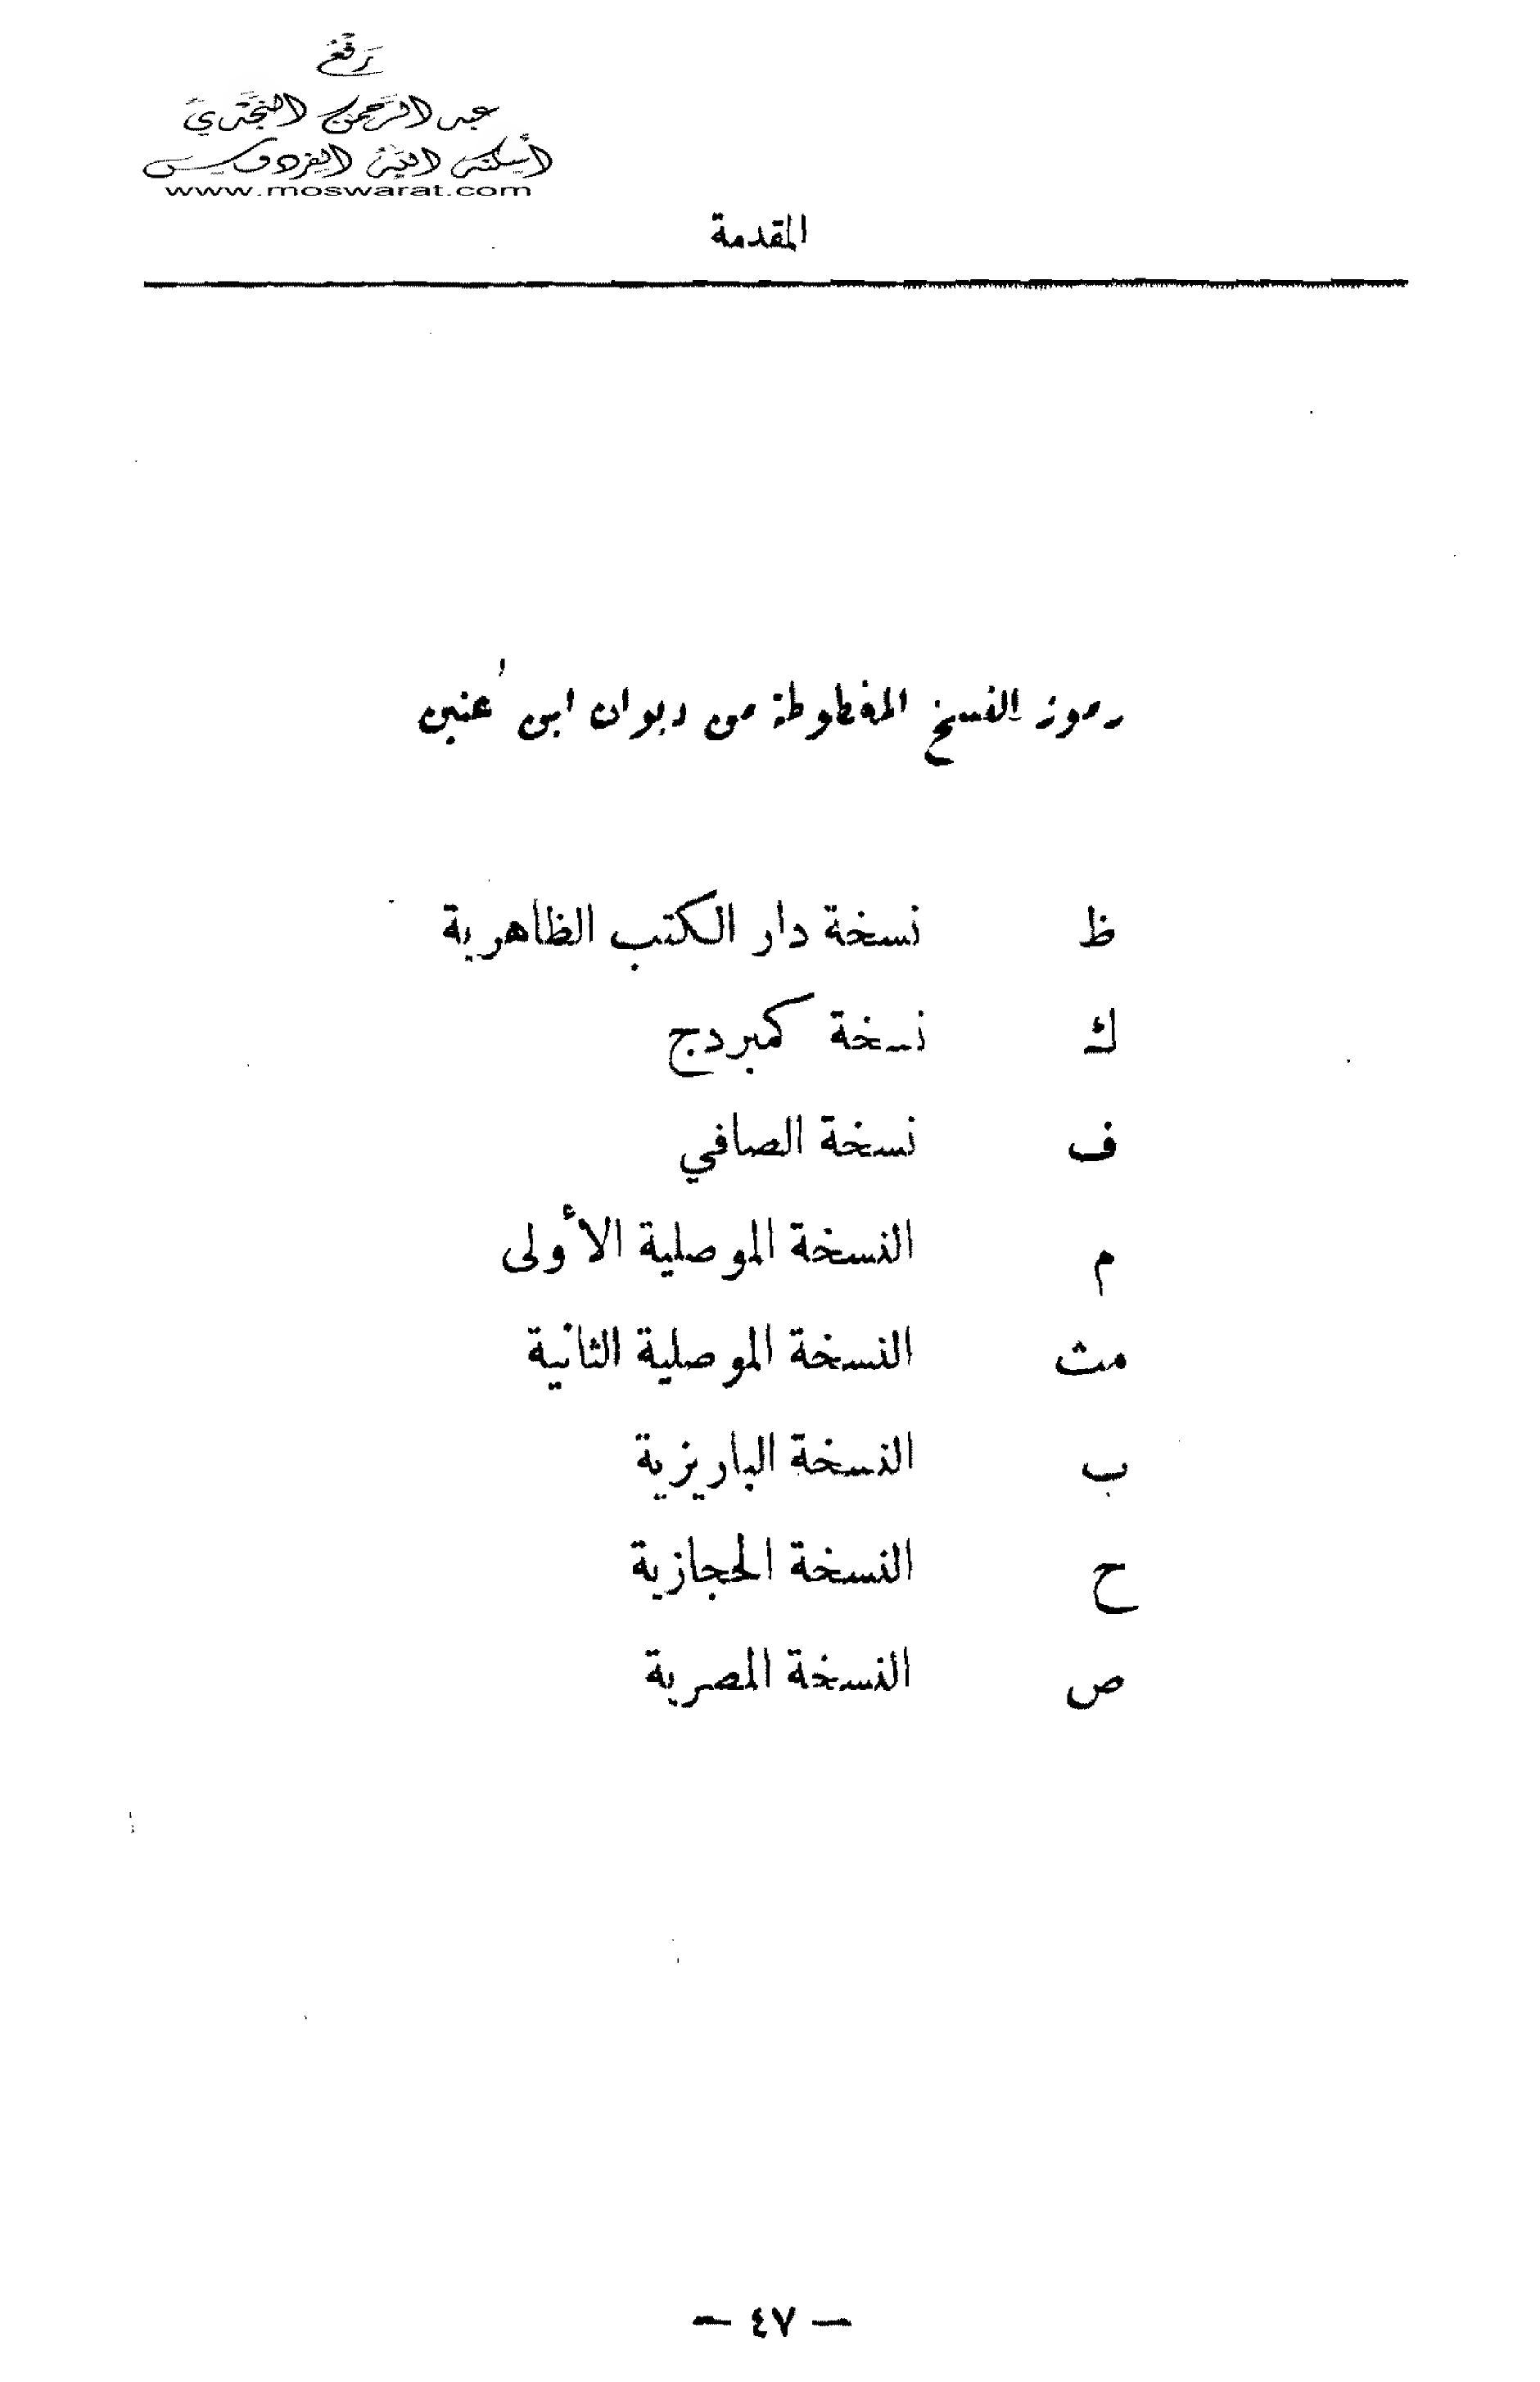 رَفْعُ
عبد الرَّحمن النَّجْدِيِّ
أسكنه الله الفردوس
www.moswarat.com
المقدمة
رموز النسخ المخطوطة من ديوان ابن ُعنين
ظ نسخة دار الكتب الظاهرية
ك نسخة كمبردج
ف نسخة الصافي
م النسخة الموصلية الأولى
مث النسخة الموصلية الثانية
ب النسخة الباريزية
ح النسخة الحجازية
ص النسخة المصرية
— ٤٧ —